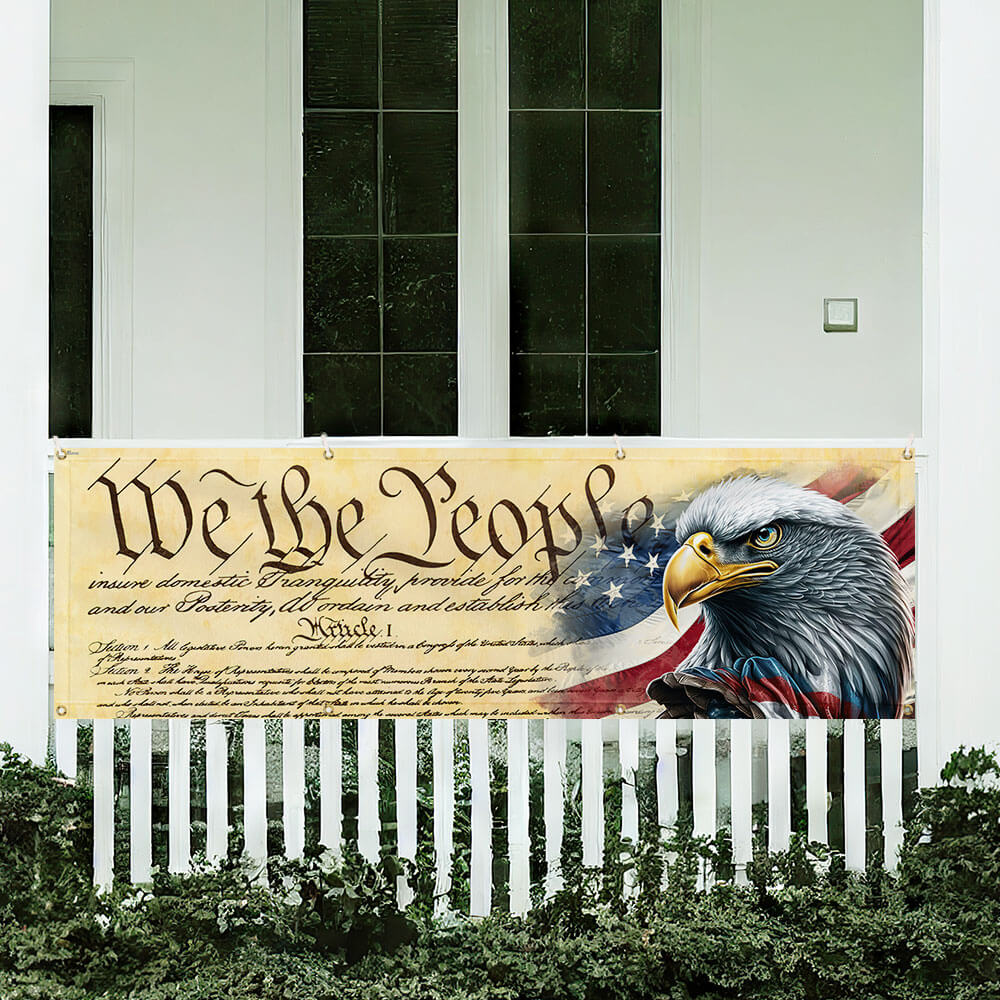 We the People
insure domestic Tranquility, provide for the
and our Posterity, do ordain and establish this
Article. I
Section 1 All legislative Powers herein granted shall be vested in a Congress of the United States, which
of Representatives
Section 2 The House of Representatives shall be composed of Members chosen every second Year by the People of the
in each State shall have Qualifications requisite for Electors of the most numerous Branch of the State Legislature.
No Person shall be a Representative who shall not have attained to the Age of twenty five Years and
and who shall not when elected be an Inhabitant of that State in which he shall be chosen
Representatives and direct Taxes shall be apportioned among the several States which may be included within this